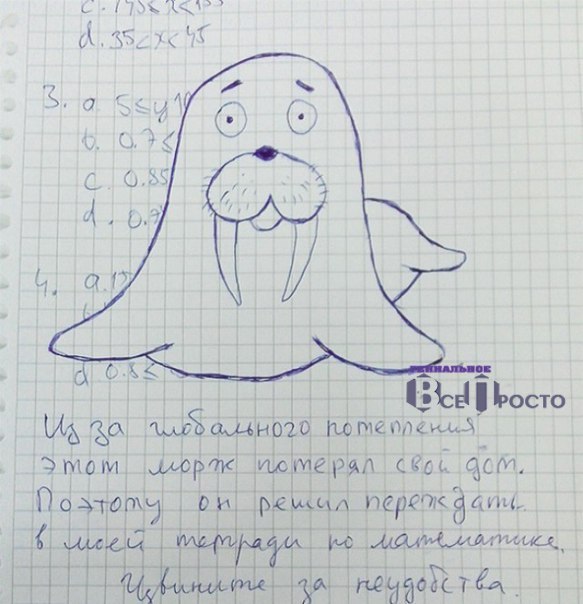 c. 145≤x≤155
d. 35<x<45
3. a. 5≤y
b. 0.7≤
c. 0.85
d. 0.7
4. a. 15
d 0.8≤
ГЕНИАЛЬНОЕ
ВСЕ ПРОСТО
Из за глобального потепления
этот морж потерял свой дом.
Поэтому он решил переждать
в моей тетради по математике.
Извините за неудобства.